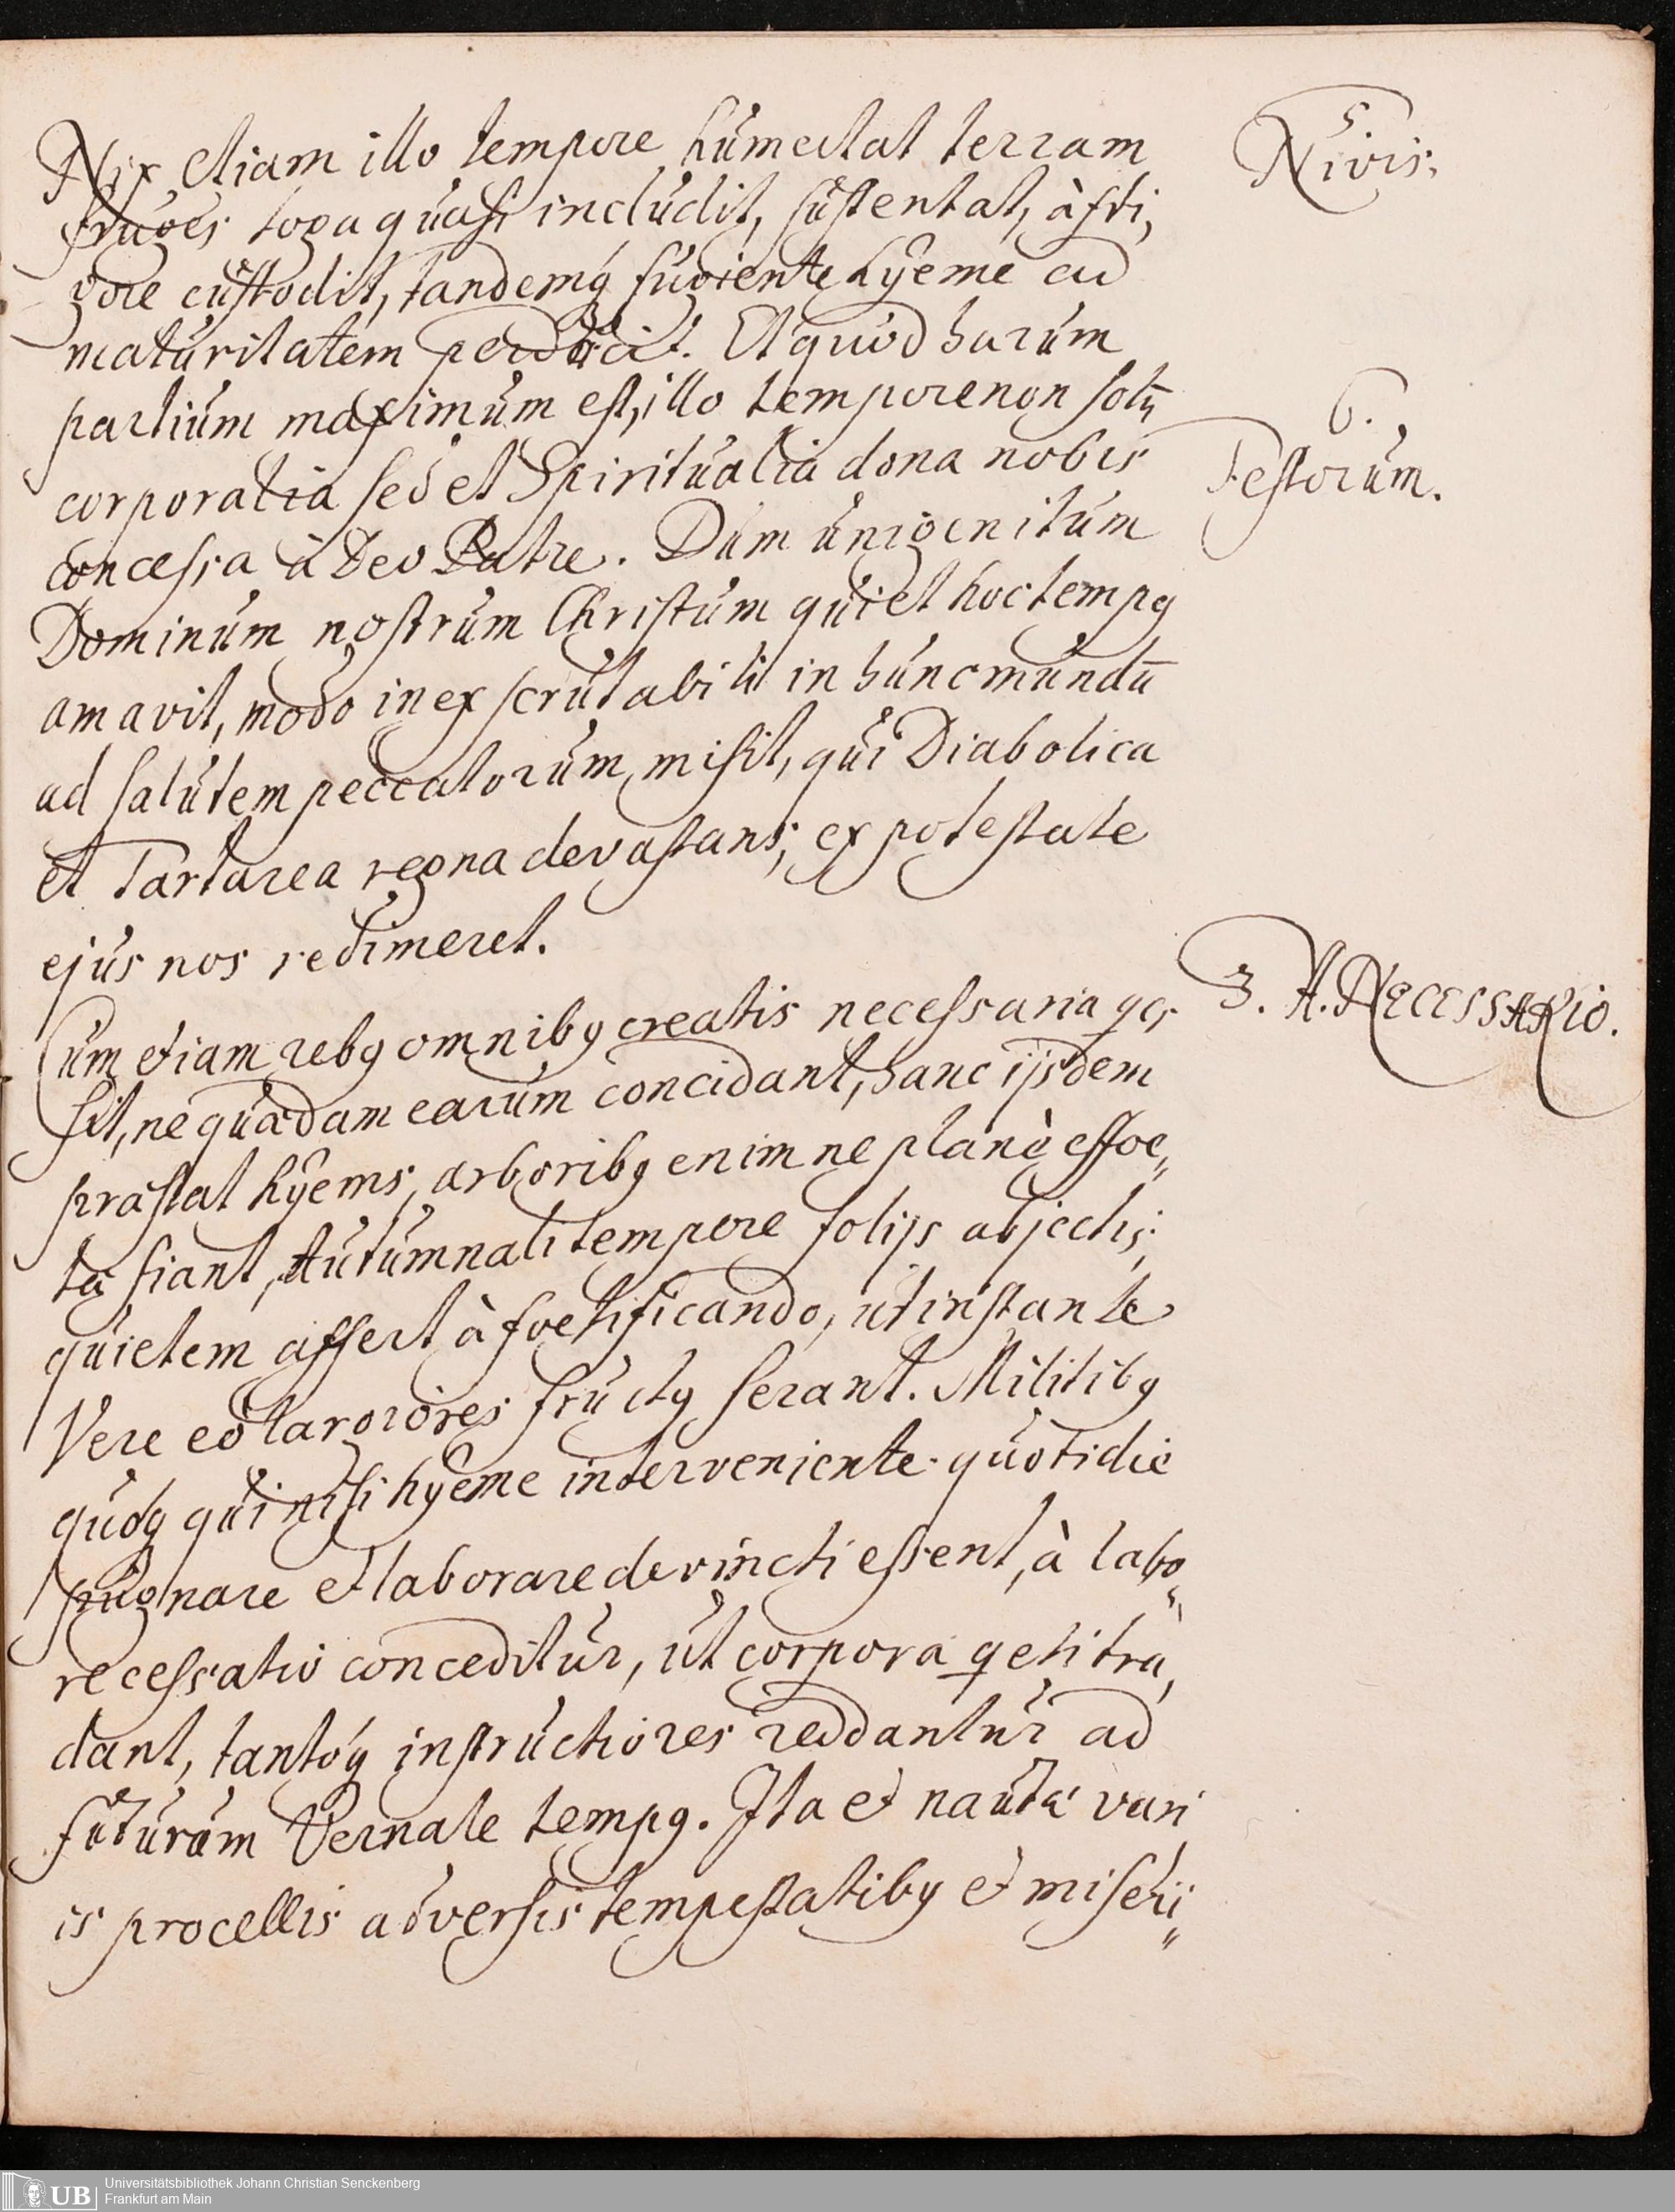 Nix etiam illo tempore humectat terram
5
Nivis.
fruges toga quasi includit, sustentat, à fri,
gore custodit, tandemq fugiente hÿeme ad
maturitatem perducit. Et quod harum
partium maximum est, illo tempore non solū
6.
Festorum.
corporalia sed et Spiritualia dona nobis
concessa à Deo Patre. Dum unigenitum
Dominum nostrum Christum qui et hoc tempq
amavit, modo inexscrutabili in hunc mundū
ad salutem peccatorum misit, qui Diabolica
et Tartarea regna devastans, ex potestate
ejus nos redimeret.
3. A. NECESSARIO.
Cum etiam rebq omnibq creatis necessaria qes
sit, ne quædam earum concidant, hanc ijsdem
præstat hÿems, arboribq enim ne planè effoe„
tæ fiant, Autumnali tempore folijs abjectis,
quietem affert à foetificando, ut instante
Vere eò largiores fructq ferant. Militibq
quoq qui nisi hÿeme interveniente quotidie
pugnare et laborare devincti essent, à labo„
re cessatio conceditur, ut corpora qeti tra,
dant, tantóq instructiores reddantur ad
futurum Vernale tempq. Ita et nautæ vari
is procellis adversis tempestatibq et miserij„
Universitätsbibliothek Johann Christian Senckenberg
UB
Frankfurt am Main